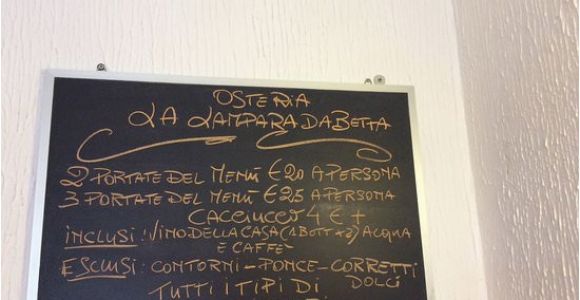 OSTERIA
LA LAMPARA DA BETTA
2 PORTATE DEL MENÙ €20 A PERSONA
3 PORTATE DEL MENÙ €25 A PERSONA
CACCIUCCO 4€ +
INCLUSI: VINO DELLA CASA (1 BOTT × 3) ACQUA
E CAFFÈ
ESCLUSI: CONTORNI - PONCE - CORRETTI
DOLCI
TUTTI I TIPI DI